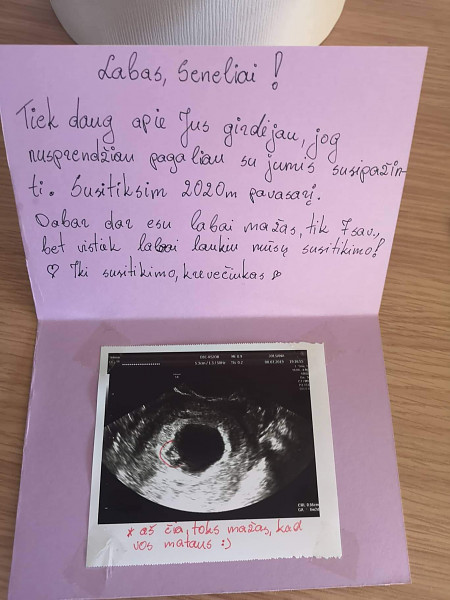 Labas, Seneliai!
Tiek daug apie Jus girdėjau, jog
nusprendžiau pagaliau su jumis susipažin-
ti. Susitiksim 2020m pavasarį.
Dabar dar esu labai mažas, tik 7sav.,
bet vistiek labai laukiu mūsų susitikimo!
♡ Iki susitikimo, krevečiukas ♡
* aš čia, toks mažas, kad
vos mataus :)